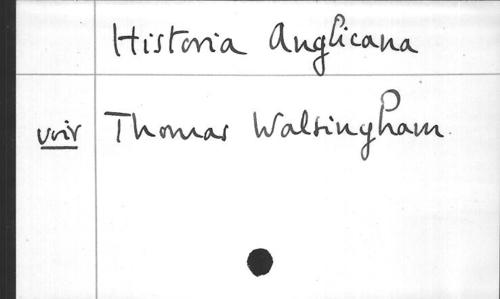 Historia Anglicana
voir Thomas Walsingham.